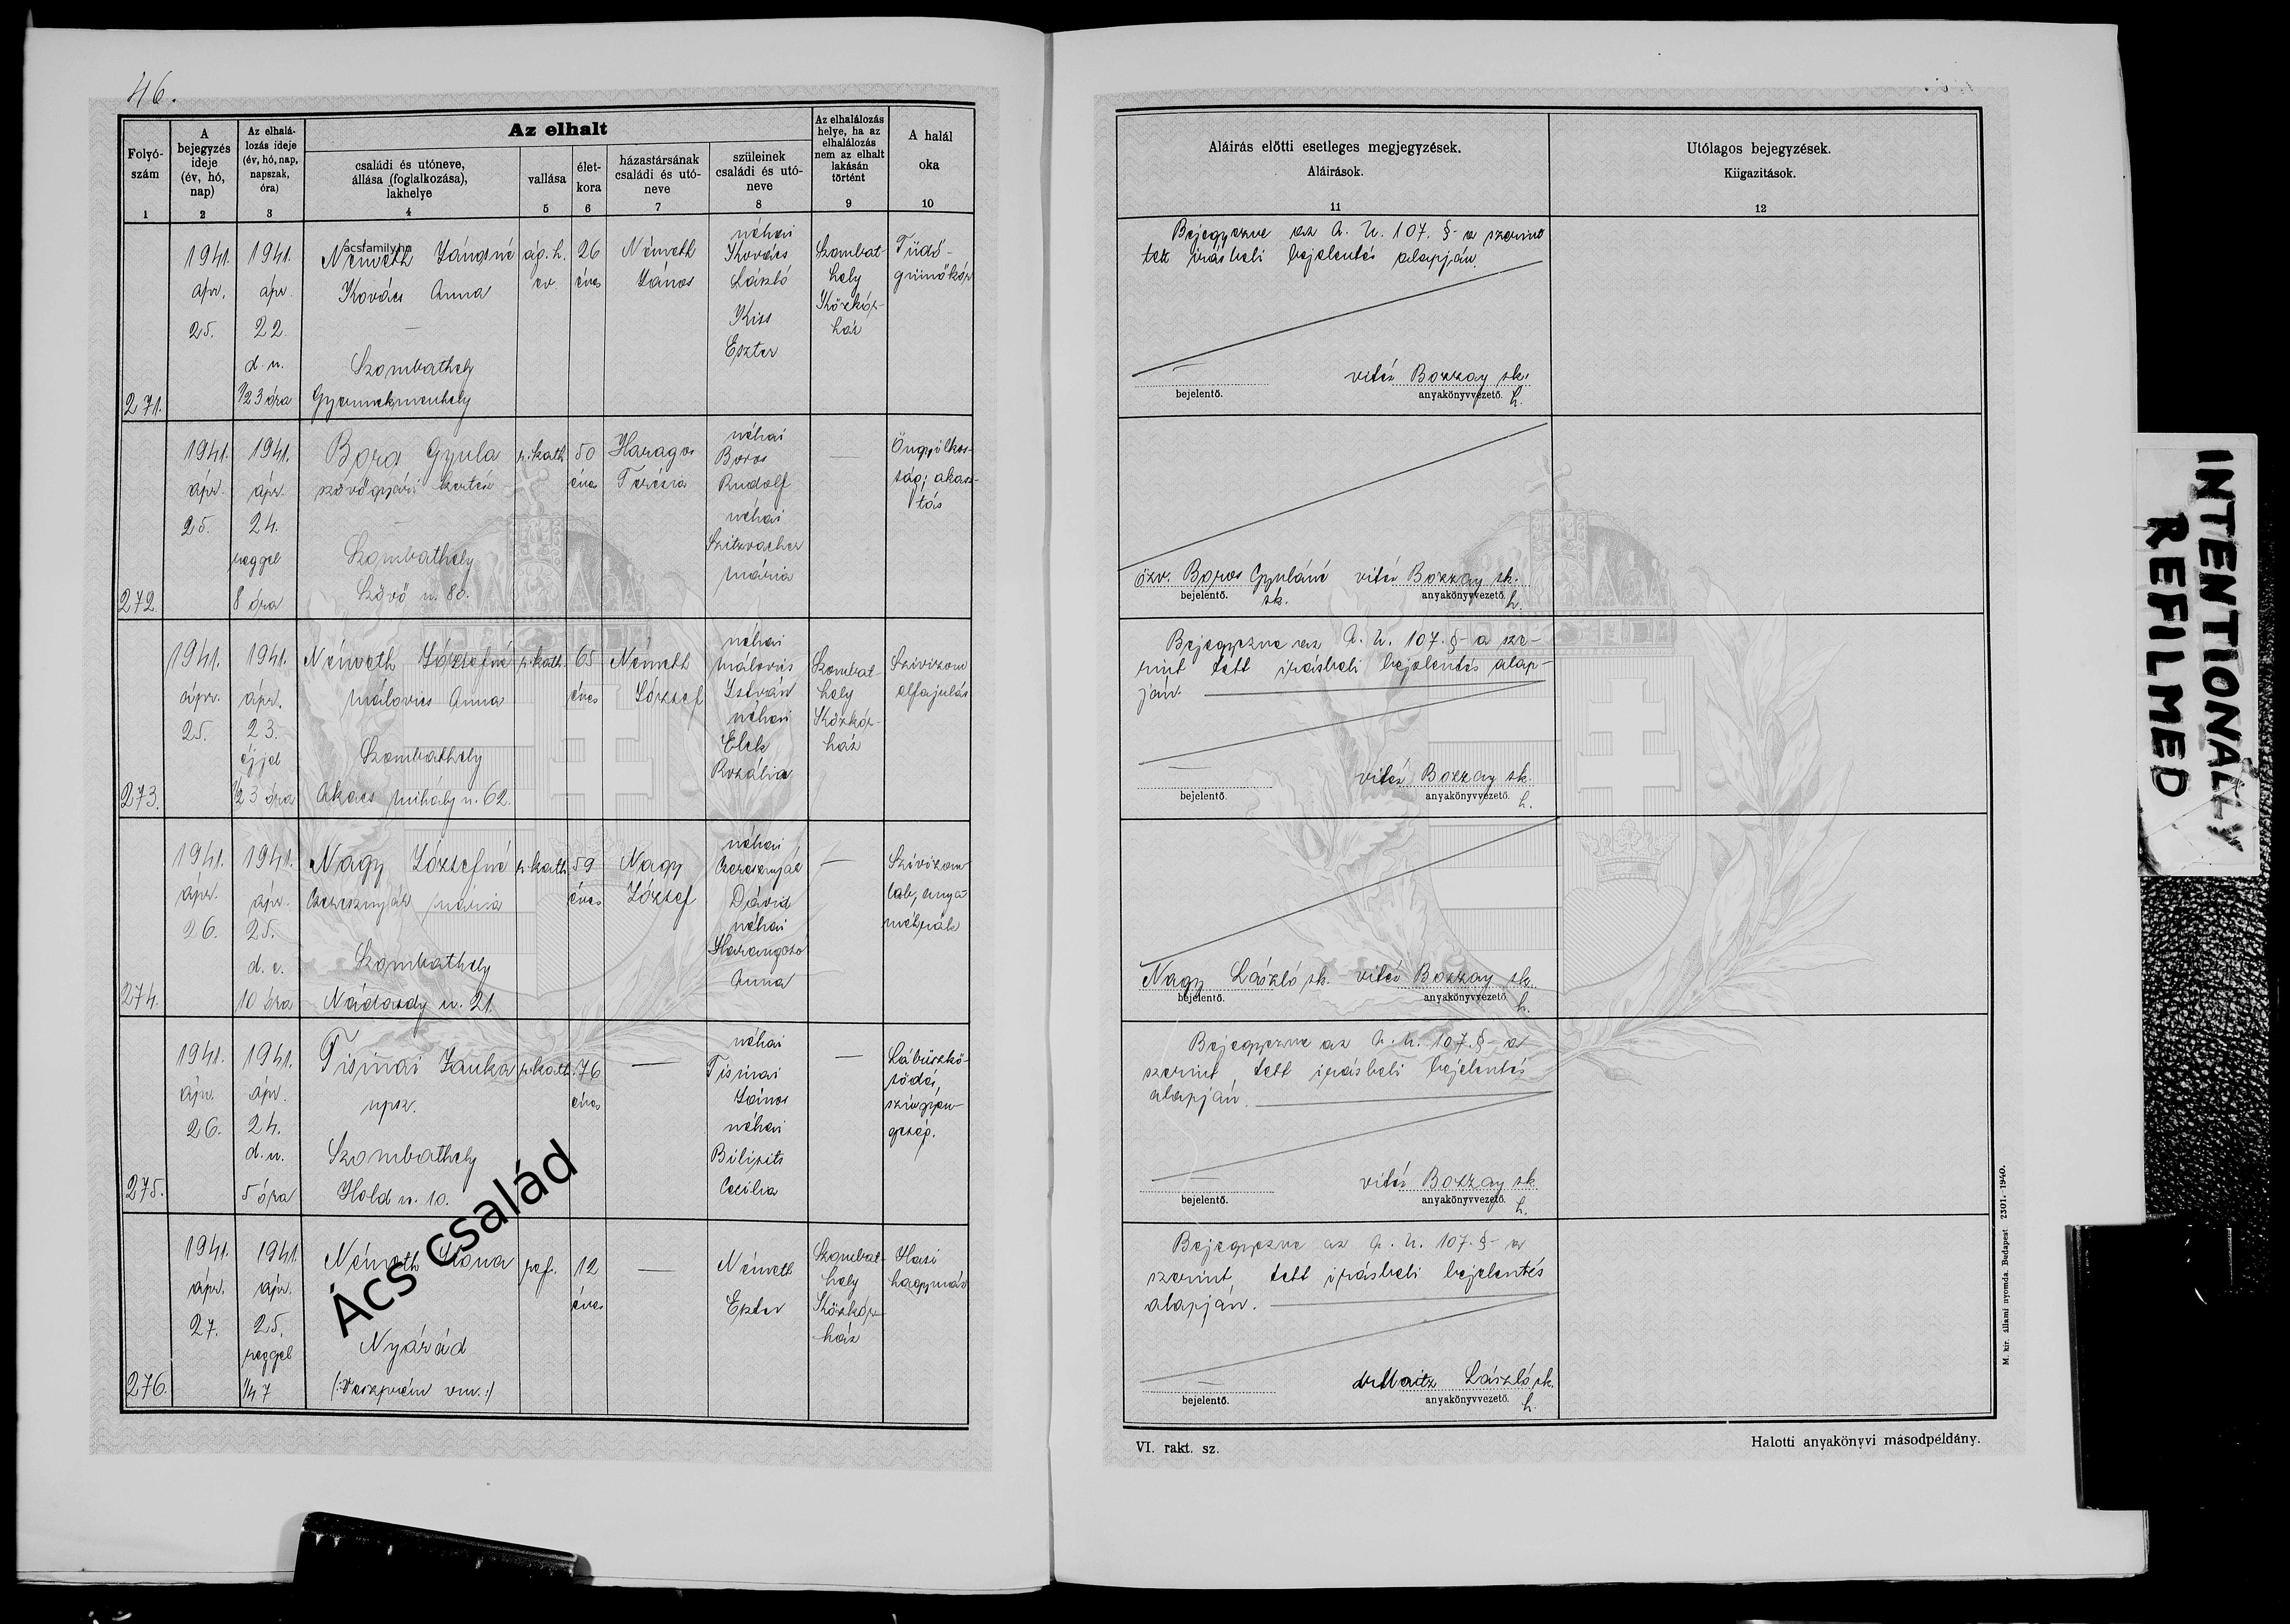 46.
Folyó-
szám
A
bejegyzés
ideje
(év, hó,
nap)
Az elhalá-
lozás ideje
(év, hó, nap,
napszak,
óra)
Az elhalt
családi és utóneve,
állása (foglalkozása),
lakhelye
vallása
élet-
kora
házastársának
családi és utó-
neve
szüleinek
családi és utó-
neve
Az elhalálozás
helye, ha az
elhalálozás
nem az elhalt
lakásán
történt
A halál
oka
1
2
3
4
5
6
7
8
9
10
271.
1941.
ápr.
25.
1941.
ápr.
22.
d. u.
1/2 3 óra
acsfamily.hu
Németh Jánosné
Kovács Anna
—
Szombathely
Gyermekmenhely
ág. h.
ev.
26
éves
Németh
János
néhai
Kovács
László
Kiss
Eszter
Szombat-
hely
Közkór-
ház
Tüdő-
gümőkór
272.
1941.
ápr.
25.
1941.
ápr.
24.
reggel
8 óra
Boros Gyula
szövőgyári
Szombathely
Szövő u. 80.
r. kath.
50
éves
Haragos
Terézia
néhai
Boros
Rudolf
néhai
Mária
—
Öngyilkos-
ság; akasz-
tás
273.
1941.
ápr.
25.
1941.
ápr.
23.
éjjel
1/2 3 óra
Németh Józsefné
Málovics Anna
Szombathely
Akacs Mihály u. 62.
r. kath.
65
éves
Németh
József
néhai
Málovics
István
néhai
Elek
Rozália
Szombat-
hely
Közkór-
ház
Szívizom
elfajulás
274.
1941.
ápr.
26.
1941.
ápr.
25.
d. e.
10 óra
Nagy Józsefné
Cseresznyák Mária
Szombathely
Nádasdy u. 21.
r. kath.
59
éves
Nagy
József
néhai
Cseresnyák
Dávid
néhai
Harangozo
Anna
—
Szívizom
lob, anya-
méhrák
275.
1941.
ápr.
26.
1941.
ápr.
24.
d. u.
5 óra
Tisinai Janka
npsz.
Szombathely
Hold u. 10.
r. kath.
76
éves
—
néhai
Tisinai
János
néhai
Bilisits
Cecilia
—
Lábüszkö-
södés,
szívgyen-
geség.
276.
1941.
ápr.
27.
1941.
ápr.
25.
reggel
1/4 7
Németh Ilona
Nyárád
(:Veszprém vm.:)
ref.
12
éves
—
Németh
Eszter
Szombat-
hely
Közkór-
ház
Hasi
hagymáz
Ács család
Aláírás előtti esetleges megjegyzések.
Aláírások.
11
Utólagos bejegyzések.
Kiigazitások.
12
Bejegyezve az A. U. 107. §-a szerint
tett írásbeli bejelentés alapján.
vitéz Bozzay sk.
bejelentő.
anyakönyvvezető. h.
özv. Boros Gyuláné vitéz Bozzay sk.
bejelentő. sk.
anyakönyvvezető. h.
Bejegyezve az A. U. 107. §-a sze-
rint tett írásbeli bejelentés alap-
ján.
vitéz Bozzay sk.
bejelentő.
anyakönyvvezető. h.
Nagy László sk. vitéz Bozzay sk.
bejelentő.
anyakönyvvezető. h.
Bejegyezve az A. U. 107. §-a
szerint tett írásbeli bejelentés
alapján.
vitéz Bozzay sk.
bejelentő.
anyakönyvvezető. h.
Bejegyezve az A. U. 107. §-a
szerint tett írásbeli bejelentés
alapján.
dr Maitz László sk.
bejelentő.
anyakönyvvezető. h.
VI. rakt. sz.
Halotti anyakönyvi másodpéldány.
M. kir. állami nyomda. Budapest 2301.-1940.
INTENTIONALLY
REFILMED